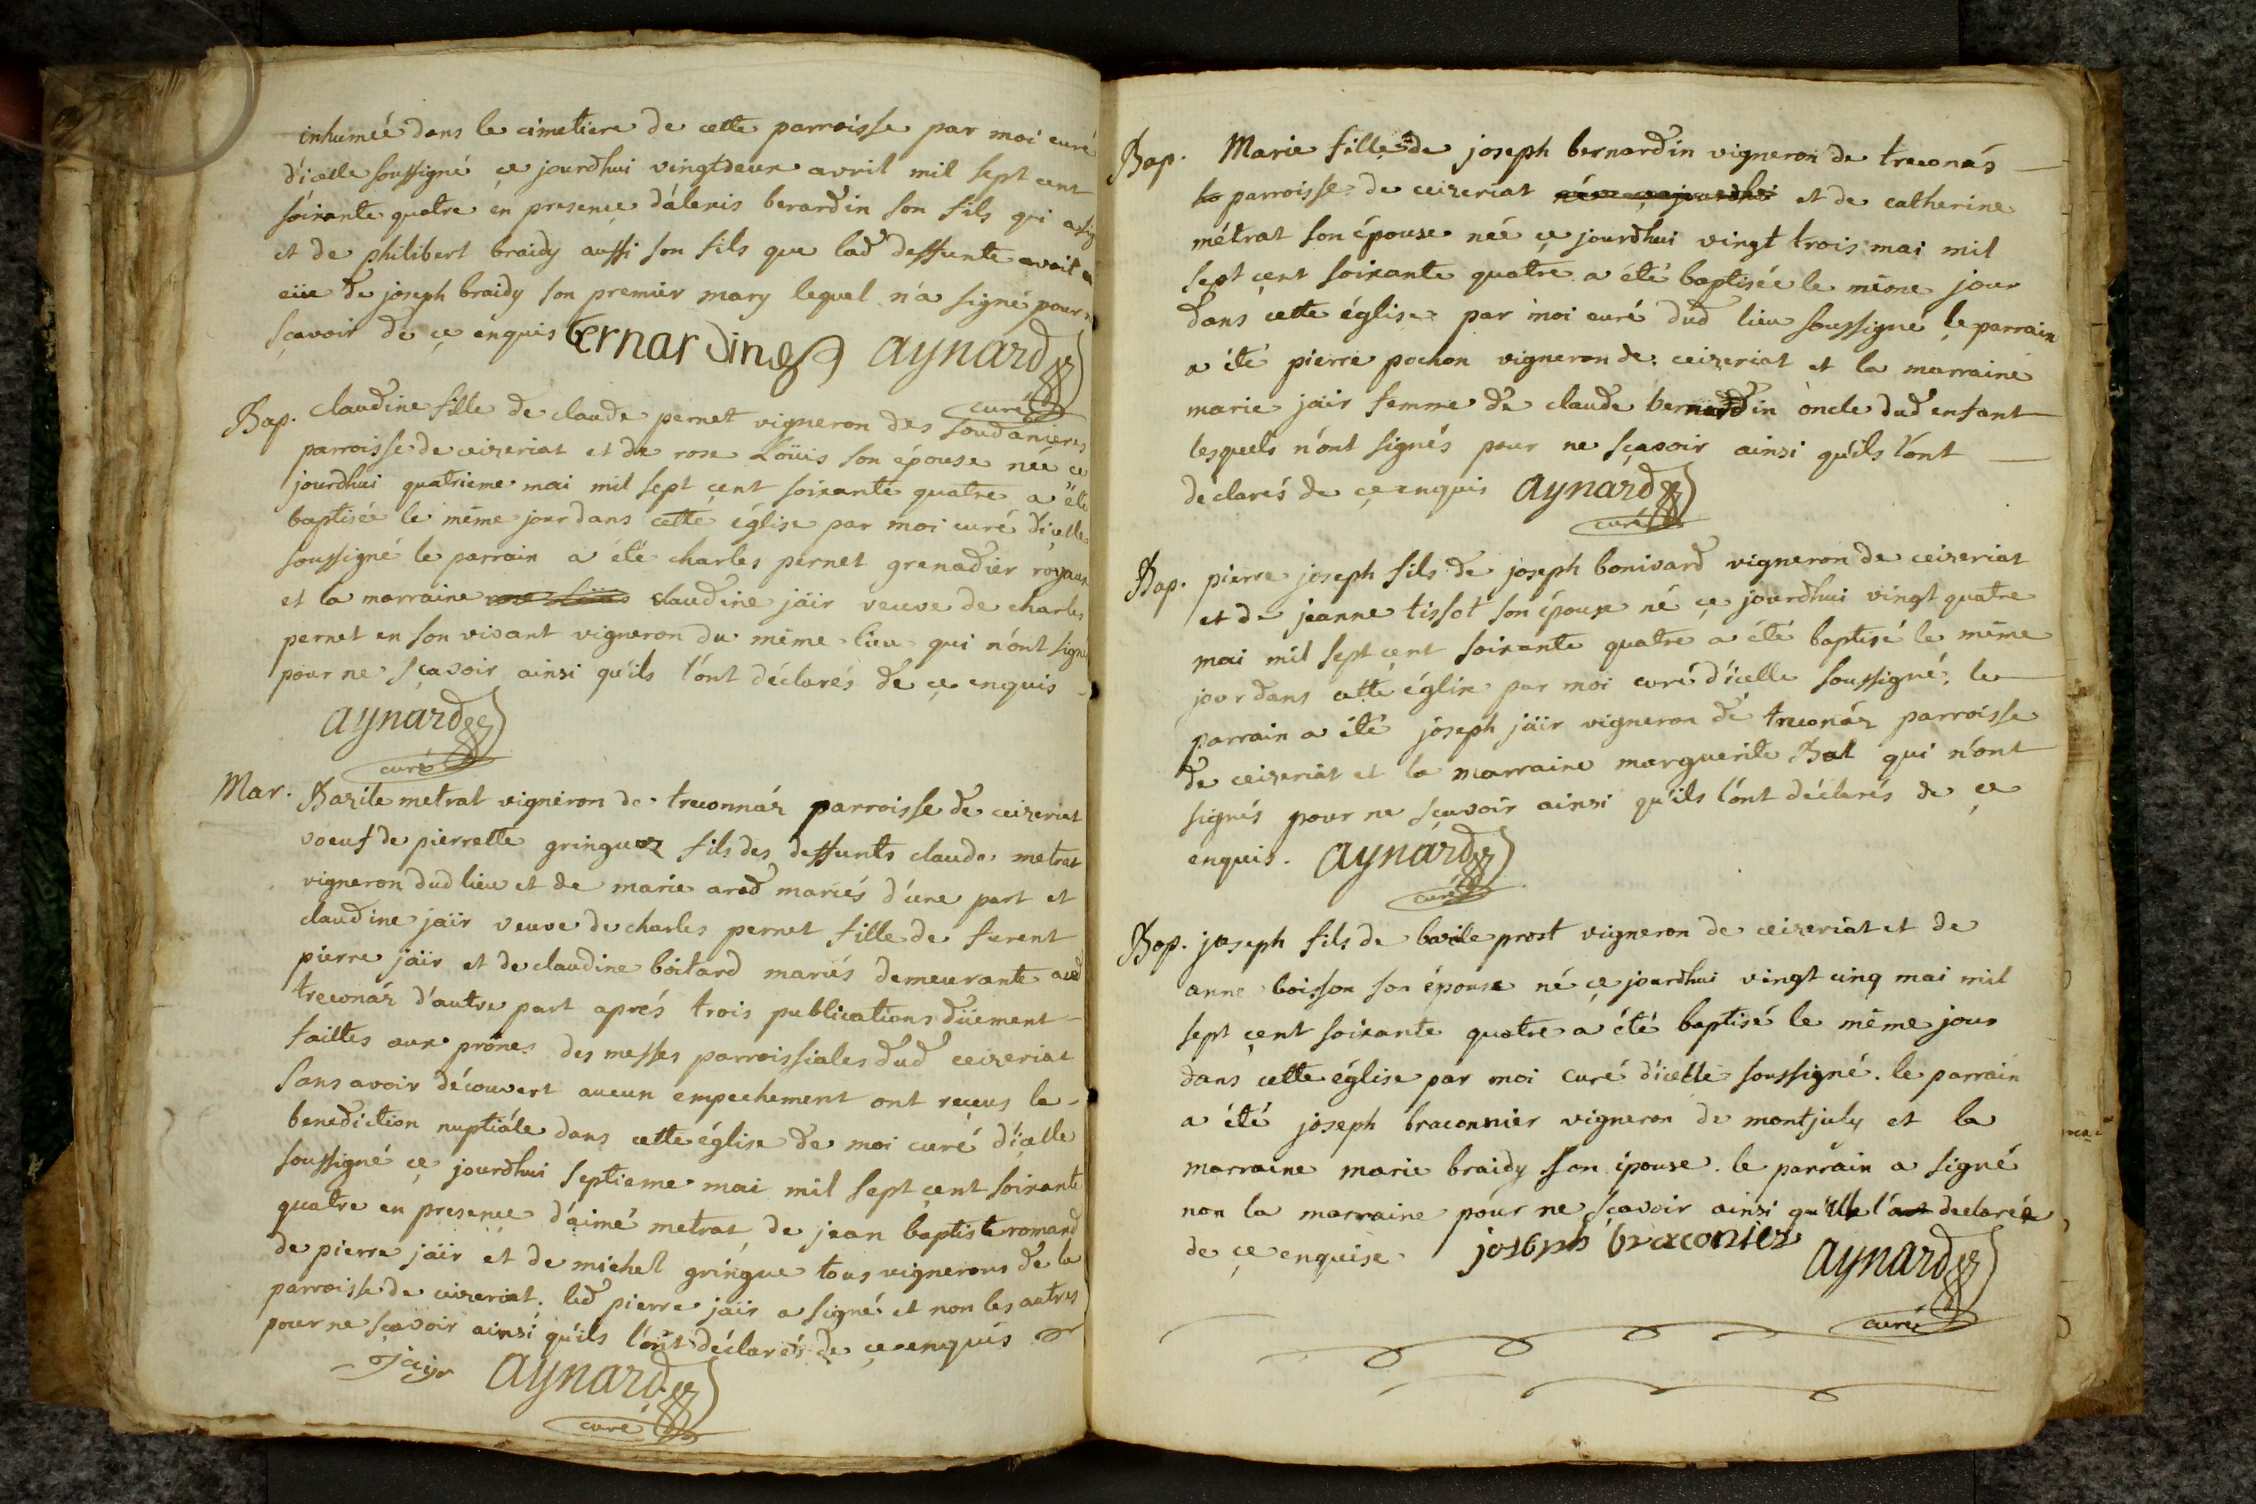 inhumée dans le cimetiere de cette parroisse par moi curé
d'icelle soussigné ce jourdhui vingtdeux avril mil sept cent
soixante quatre en presence d'alexis berardin son fils qui a sig
et de philibert braidy aussi son fils que lad deffunte avoit
eüe de joseph braidy son premier mary lequel n'a signé pour
sçavoir de ce enquis bernardin aynard
curé
Bap. claudine fille de claude pernet vigneron des soudanieres
parroisse de ceizeriat et de rose Loüis son épouse née ce
jourdhui quatrieme mai mil sept çent soixante quatre a été
baptisée le même jour dans cette église par moi curé d'icelle
soussigné le parrain a été charles pernet grenadier royaux
et la marraine claudine jäir veuve de charles
pernet en son vivant vigneron du même lieu qui n'ont signé
pour ne sçavoir ainsi qu'ils l'ont déclarés de çe enquis
aynard
curé
Mar. Bazile metrat vigneron de treconnáz parroisse de ceizeriat
voeuf de pierrette gringuoz fils des deffunts claude metrat
vigneron dud lieu et de marie arod mariés d'une part et
claudine jaïr veuve de charles pernet fille de furent
pierre jäir et de claudine boitard mariés demeurante aud
treconáz d'autre part aprés trois publications düement
faittes aux prônes des messes parroissiales dud ceizeriat
sans avoir découvert aucun empechement ont reçeus la
benediction nuptiále dans cette église de moi curé d'icelle
soussigné çe jourdhui septieme mai mil sept çent soixante
quatre en presençe d'aimé metrat de jean baptiste romand
de pierre jäir et de michel gringue tous vignerons de la
parroisse de ceizeriat. led pierre jäir a signé et non les autres
pour ne sçavoir ainsi qu'ils l'ont déclarés de çe enquis
P jayr aynard
curé
Bap. Marie fille de joseph bernardin vigneron de treconás
parroisse de ceizeriat née ce jourdhui et de catherine
métrat son épouse née çe jourdhui vingt trois mai mil
sept çent soixante quatre a été baptisée le même jour
dans cette église par moi curé dud lieu soussigné le parrain
a été pierre pochon vigneron de ceizeriat et la marraine
marie jäir femme de claude bernardin oncle dud enfant
lesquels n'ont signés pour ne sçavoir ainsi qu'ils l'ont
declarés de çe enquis aynard
curé
Bap. pierre joseph fils de joseph bonivard vigneron de ceizeriat
et de jeanne tissot son épouse né çe jourdhui vingt quatre
mai mil sept çent soixante quatre a été baptisé le même
jour dans cette église par moi curé d'icelle soussigné. le
parrain a été joseph jäir vigneron de treconáz parroisse
de ceizeriat et la marraine marguerite Bal qui n'ont
signés pour ne sçavoir ainsi qu'ils l'ont déclarés de çe
enquis. aynard
curé
Bap. joseph fils de bazile prost vigneron de ceizeriat et de
anne boisson son épouse né çe jourdhui vingt cinq mai mil
sept çent soixante quatre a été baptisé le même jour
dans cette église par moi curé d'icelle soussigné. le parrain
a été joseph braconnier vigneron de montjuly et la
marraine marie braidy son épouse. le parrain a signé
non la marraine pour ne sçavoir ainsi qu'elle l'a declarée
de çe enquise joseph braconier aynard
curé